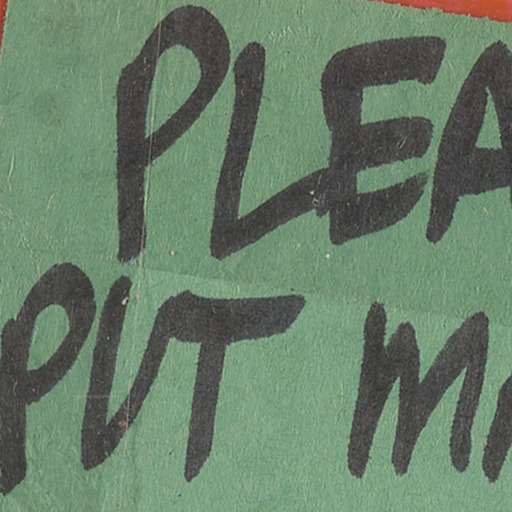 PLEA
PUT M